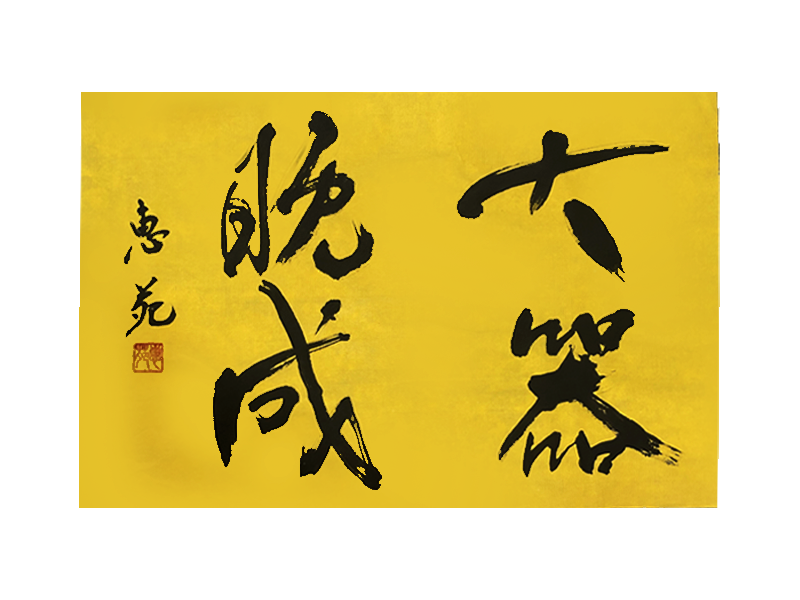 大器
晚成
惠苑